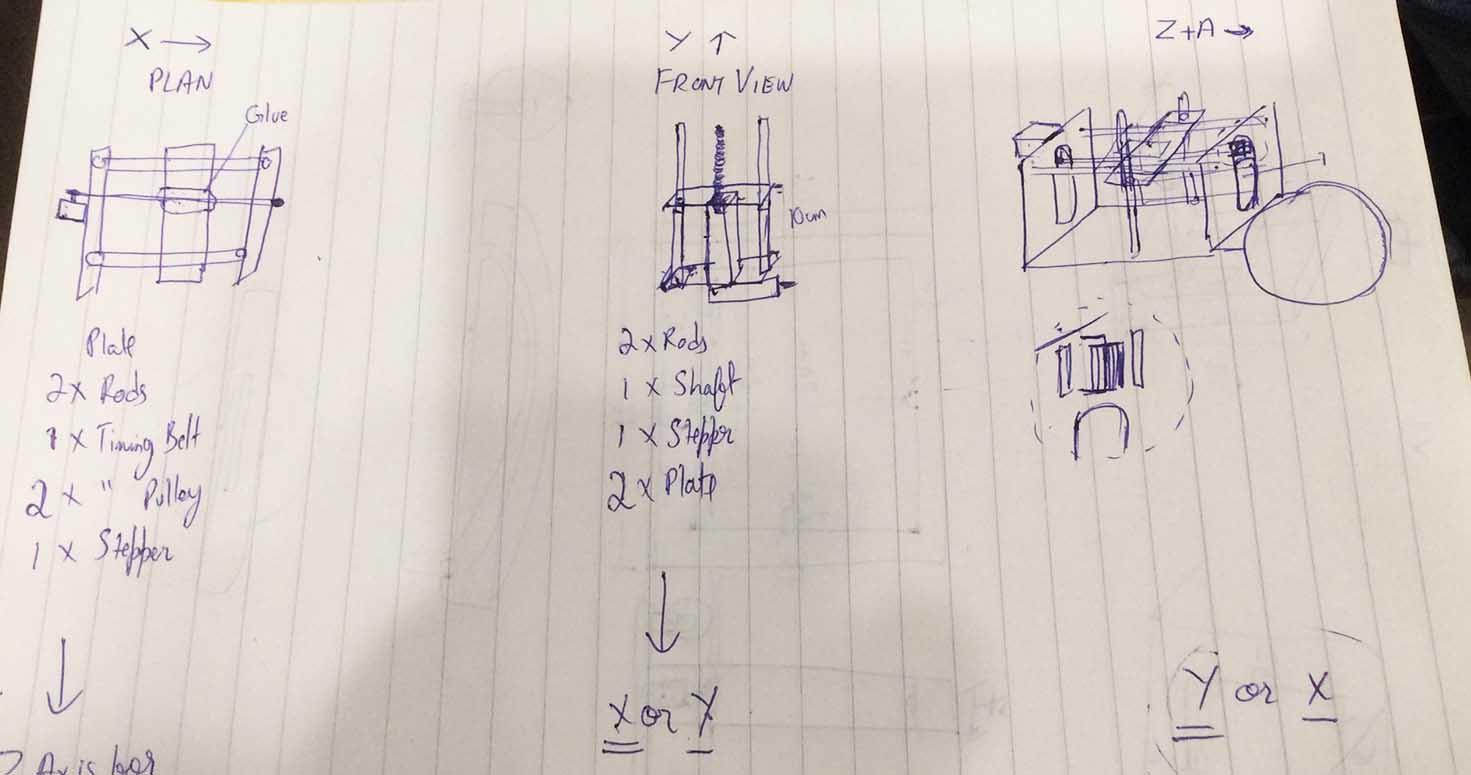 X →
PLAN
Glue
Plate
2 x Rods
1 x Timing Belt
2 x " Pulley
1 x Stepper
Z Axis bar
Y ↑
FRONT VIEW
10cm
2 x Rods
1 x Shaft
1 x Stepper
2 x Plate
X or Y
Z+A →
Y or X